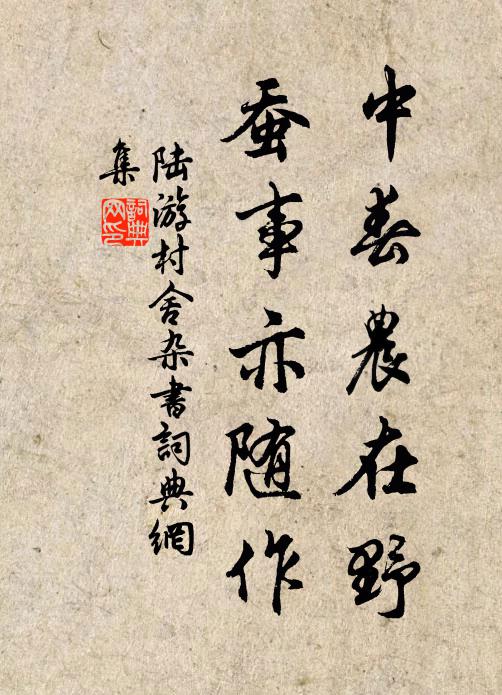 中春農在野
蚕事亦随作
陆游村舍杂書詞典網
集
詞典
网印